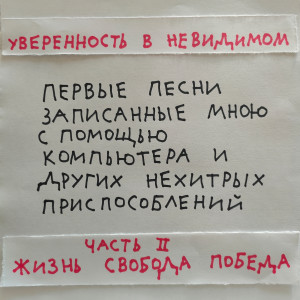 УВЕРЕННОСТЬ В НЕВИДИМОМ
ПЕРВЫЕ ПЕСНИ
ЗАПИСАННЫЕ МНОЮ
С ПОМОЩЬЮ
КОМПЬЮТЕРА И
ДРУГИХ НЕХИТРЫХ
ПРИСПОСОБЛЕНИЙ
ЧАСТЬ II
ЖИЗНЬ СВОБОДА ПОБЕДА